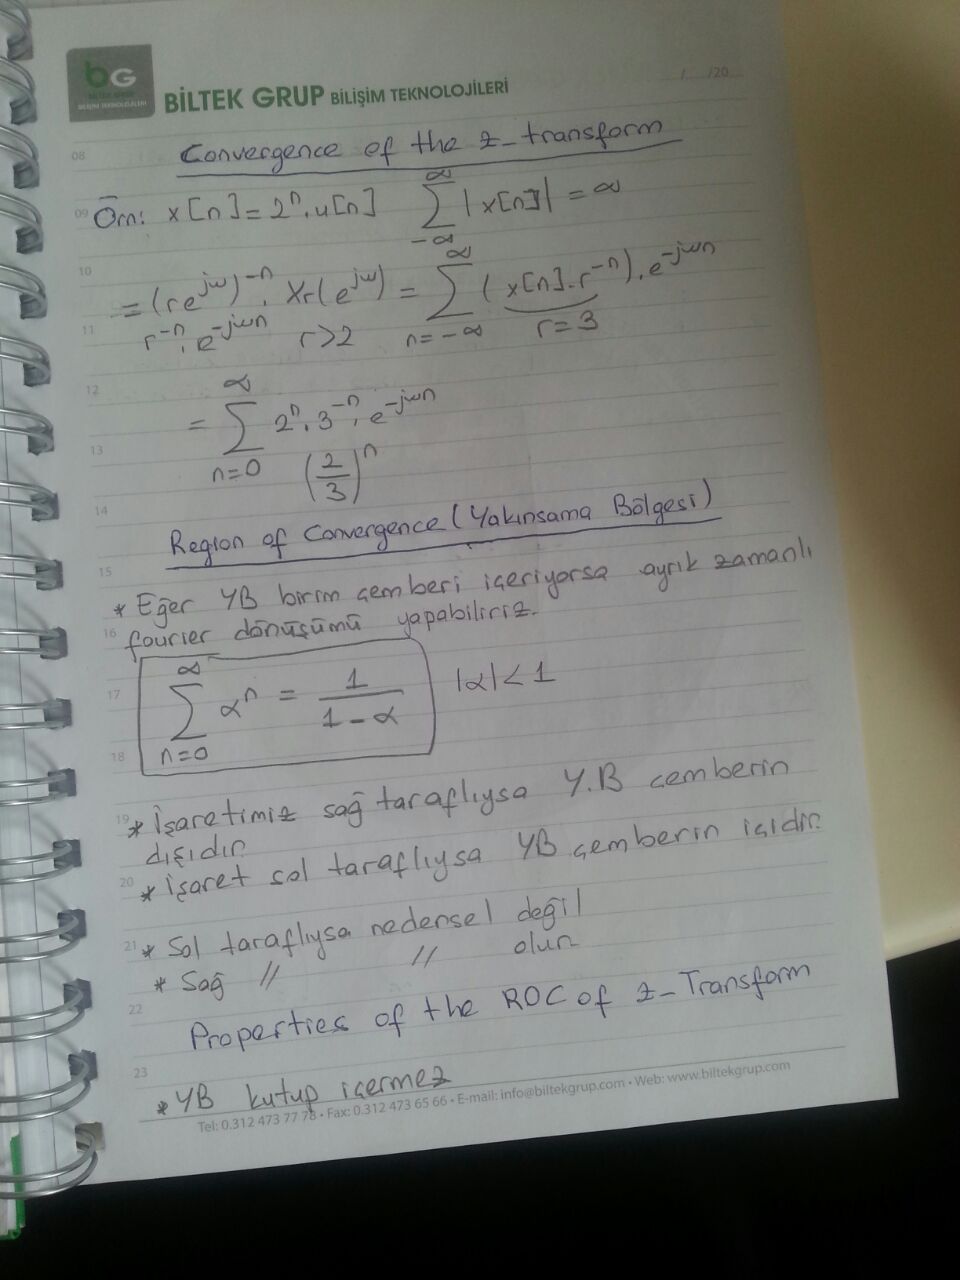 bG
BİLTEK GRUP
BİLİŞİM TEKNOLOJİLERİ
BİLTEK GRUP BİLİŞİM TEKNOLOJİLERİ
/ /20
08 Convergence of the z-transform
09 Örn: x[n] = 2^n . u[n] ∑_{-∞}^{∞} |x[n]| = ∞
10 = (re^{jω})^{-n} . Xr(e^{jω}) = ∑_{n=-∞}^{∞} (x[n].r^{-n}).e^{-jωn}
11 r^{-n}.e^{-jωn} r>2 r=3
12 = ∑_{n=0}^{∞} 2^n . 3^{-n} . e^{-jωn}
13 (2/3)^n
14 Region of Convergence (Yakınsama Bölgesi)
15 * Eğer YB birim çemberi içeriyorsa ayrık zamanlı
16 fourier dönüşümü yapabiliriz.
17 ∑_{n=0}^{∞} α^n = 1/(1-α) |α|<1
18
19 * İşaretimiz sağ taraflıysa Y.B çemberin
dışıdır.
20 * İşaret sol taraflıysa YB çemberin içidir.
21 * Sol taraflıysa nedensel değil
* Sağ // // olur.
22 Properties of the ROC of z-Transform
23
* YB kutup içermez
Tel: 0.312 473 77 78 • Fax: 0.312 473 65 66 • E-mail: info@biltekgrup.com • Web: www.biltekgrup.com